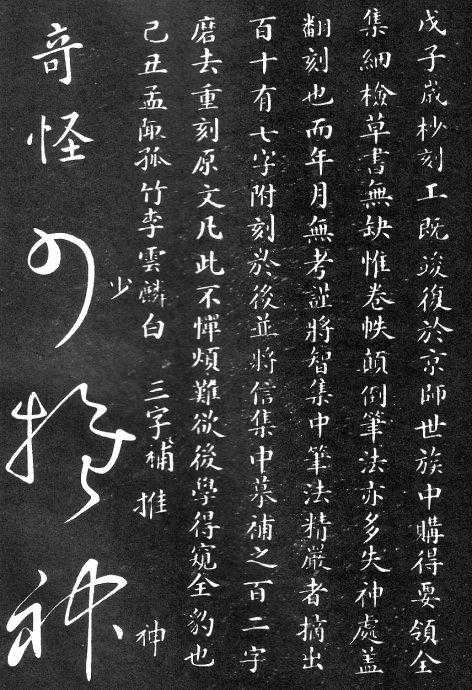 戊子嵗杪刻工既竣復於京師世族中購得要領全
集細檢草書無缺惟卷帙顛倒筆法亦多失神處蓋
翻刻也而年月無考謹將智集中筆法精嚴者摘出
百十有七字附刻於後並將信集中摹補之百二字
磨去重刻原文凡此不憚煩難欲後學得窺全豹也
己丑孟陬孤竹李雲麟白 三字補 推 神
少
奇怪少推神